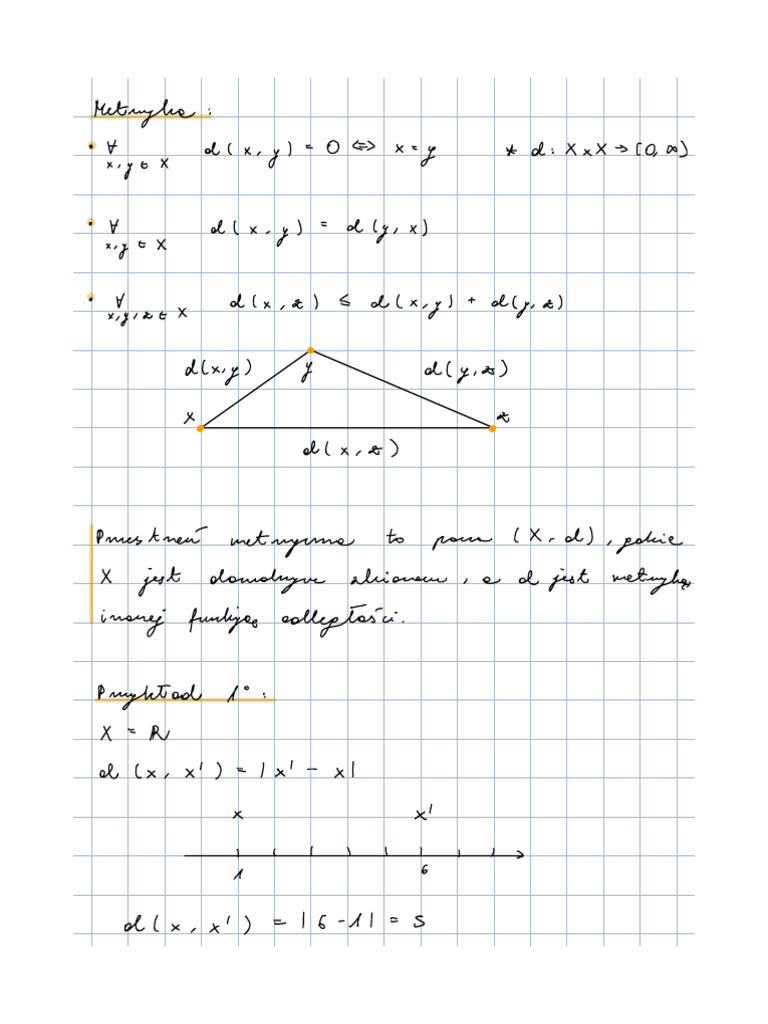 Metryka:
• ∀ x,y ∈ X d(x, y) = 0 ⇔ x = y * d: X × X → [0, ∞)
• ∀ x,y ∈ X d(x, y) = d(y, x)
• ∀ x,y,z ∈ X d(x, z) ≤ d(x,y) + d(y, z)
d(x,y) y d(y,z)
x z
d(x, z)
Przestrzeń metryczna to para (X, d), gdzie
X jest dowolnym zbiorem, a d jest metryką,
inaczej funkcją odległości.
Przykład 1°:
X = R
d(x, x') = |x' - x|
x x'
1 6
d(x, x') = |6 - 1| = 5